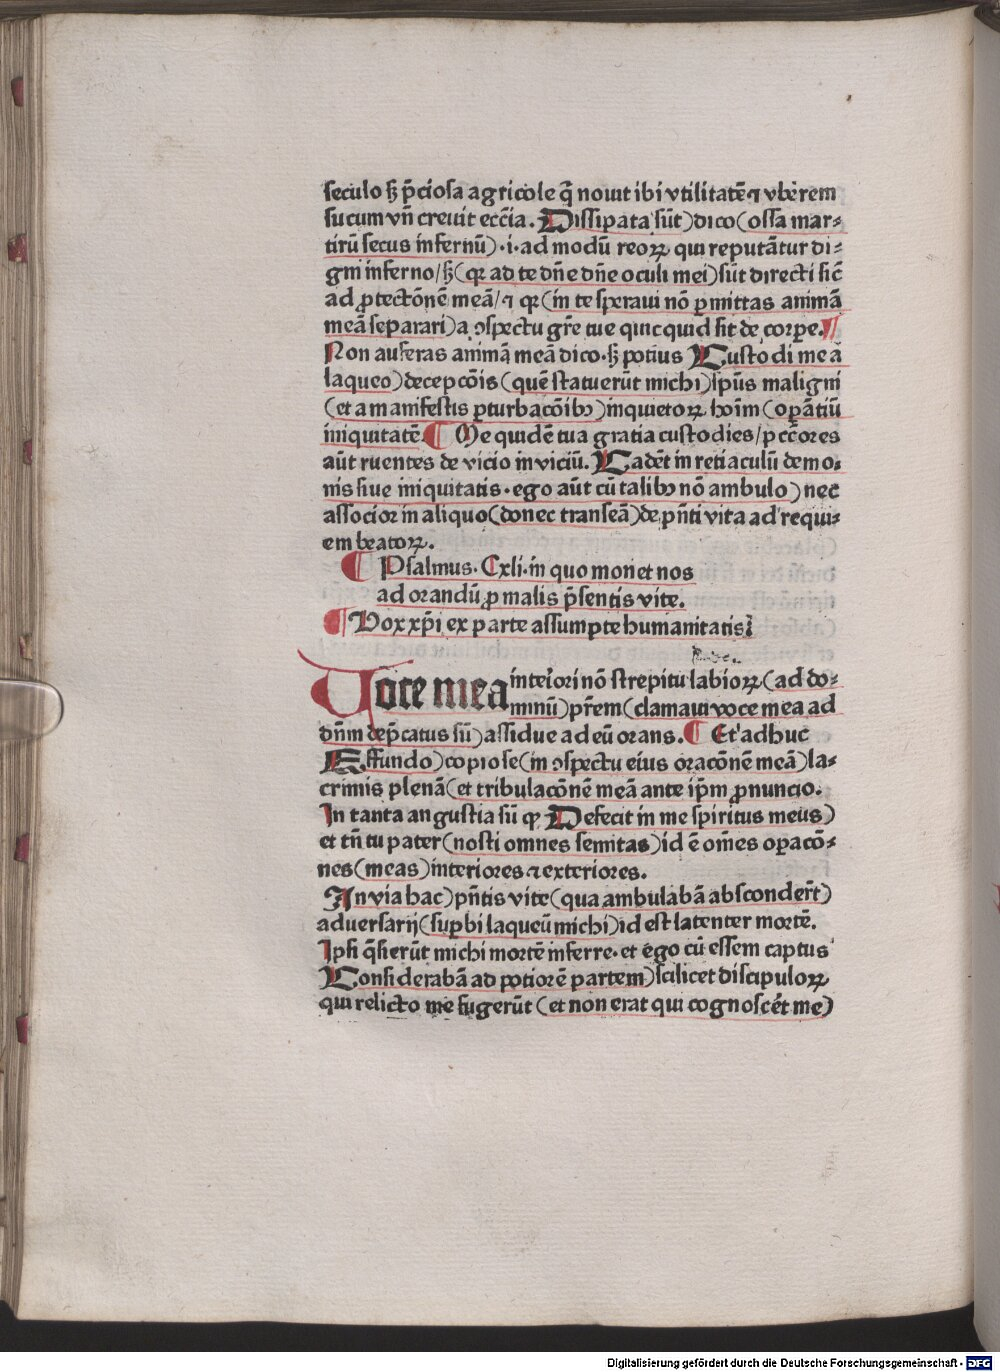 seculo sꝫ p̄ciosa agricole q̄ nouit ibi vtilitatē ⁊ vberem
sucum vn̄ creuit ecc̄ia. Dissipata sūt) dico (ossa mar⸗
tirū secus infernū) .i. ad modū reoꝝ qui reputātur di⸗
gni inferno/ sꝫ (qꝛ ad te dn̄e dn̄e oculi mei) sūt directi sic̄
ad ꝓtectōnē meā/ ⁊ qꝛ (in te speraui nō ꝑmittas animā
meā separari) a ↄspectu gr̄e tue quicquid fit de corpe. ¶
Non auferas animā meā dico. sꝫ potius Custodi me a
laqueo) decepcōis (quē statuerūt michi) sp̄us maligni
(et a manifestis ꝑturbacōibꝫ) inquietoꝝ hoīm (oꝑātiū
iniquitatē. ¶ Me quidē tua gratia custodies/ pcc̄ores
aūt ruentes de vicio in viciū. Cadēt in retiaculū demo⸗
nis siue iniquitatis. ego aūt cū talibꝫ nō ambulo) nec
associor in aliquo (donec transeā) de p̄nti vita ad requi⸗
em beatoꝝ.
¶ Psalmus. Cxli. in quo monet nos
ad orandū ꝓ malis p̄sentis vite.
¶ Vox xp̄i ex parte assumpte humanitatis
Voce mea interiori nō strepitu labioꝝ (ad do⸗
minū) pr̄em (clamaui voce mea ad
dn̄m dep̄catus sū) assidue ad eū orans. ¶ Et adhuc
Effundo) copiose (in ↄspectu eius oracōnē meā) la⸗
crimis plenā (et tribulacōnē meā ante ip̄m ꝓnuncio.
In tanta angustia sū qꝛ Defecit in me spiritus meus)
et tn̄ tu pater (nosti omnes semitas) id ē om̄es oꝑacō⸗
nes (meas) interiores ⁊ exteriores.
In via hac) pn̄tis vite (qua ambulabā absconder̄t)
aduersarij (suꝑbi laqueū michi) id est latenter mortē.
Ipsi q̄sierūt michi mortē inferre. et ego cū essem captus
Considerabā ad potiorē partem) scilicet discipuloꝝ
qui relicto me fugerūt (et non erat qui cognoscēt me)
Digitalisierung gefördert durch die Deutsche Forschungsgemeinschaft - DFG